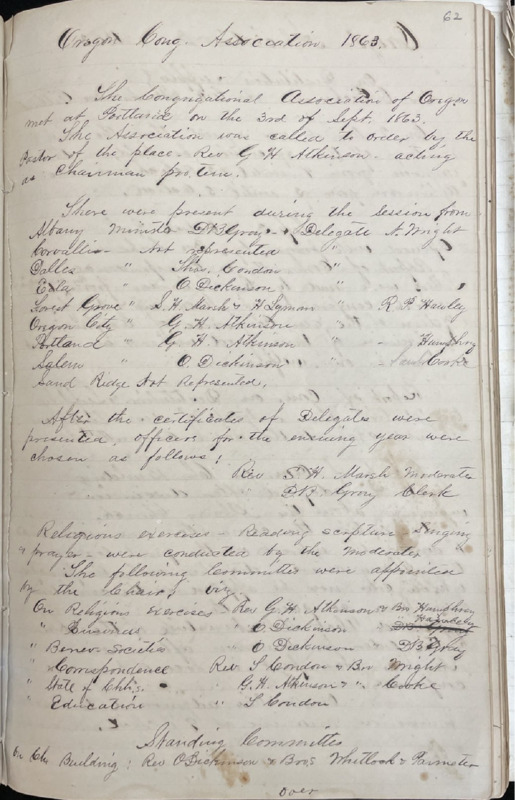 62
Oregon Cong. Association 1863.
The Congregational Association of Oregon
met at Portland on the 3rd of Sept. 1863.
The Association was called to order by the
Pastor of the place - Rev G H Atkinson - acting
as Chairman pro tem.
There were present during the session from
Albany Minister Delegate A. Wright
Corvallis - Not represented "
Dalles " Thos. Condon "
Eola " O. Dickinson "
Forest Grove " S. H. Marsh & H Lyman " R P Hawley
Oregon City " G. H. Atkinson "
Portland " G. H. Atkinson " Humphrey
Salem " O. Dickinson " Cooke
Sand Ridge Not Represented.
After the certificates of Delegates were
presented, officers for the ensuing year were
chosen as follows;
Rev S. H. Marsh Moderator
Clerk
Religious exercises - Reading scripture singing
& prayer - were conducted by the Moderator
The following Committees were appointed
by the Chair, viz
On Religious exercises - Rev G. H. Atkinson & Bro Humphrey
" Business O Dickinson
" Benev. Societies O Dickinson
" Correspondence Rev T Condon & Bro Wright
" State of Chhs. " G. H. Atkinson & " Cooke
" Education " T Condon
Standing Committee
On Chh Building: Rev O Dickinson & Bros Whitlock & Parmeter
over